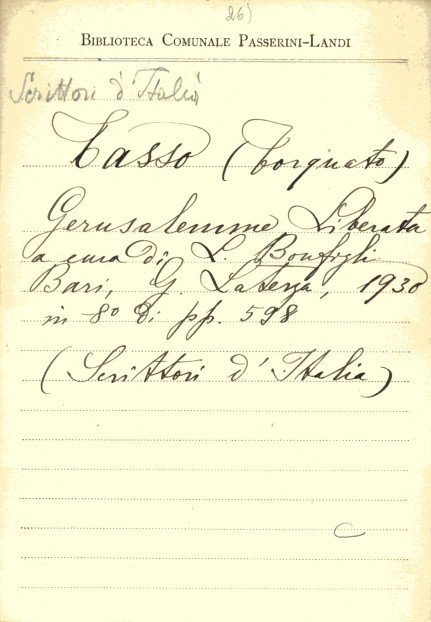 26)
BIBLIOTECA COMUNALE PASSERINI-LANDI
Scrittori d'Italia
Tasso (Torquato)
Gerusalemme Liberata
a cura di L. Bonfigli
Bari, G. Laterza, 1930
in 8º di pp. 598
(Scrittori d'Italia)